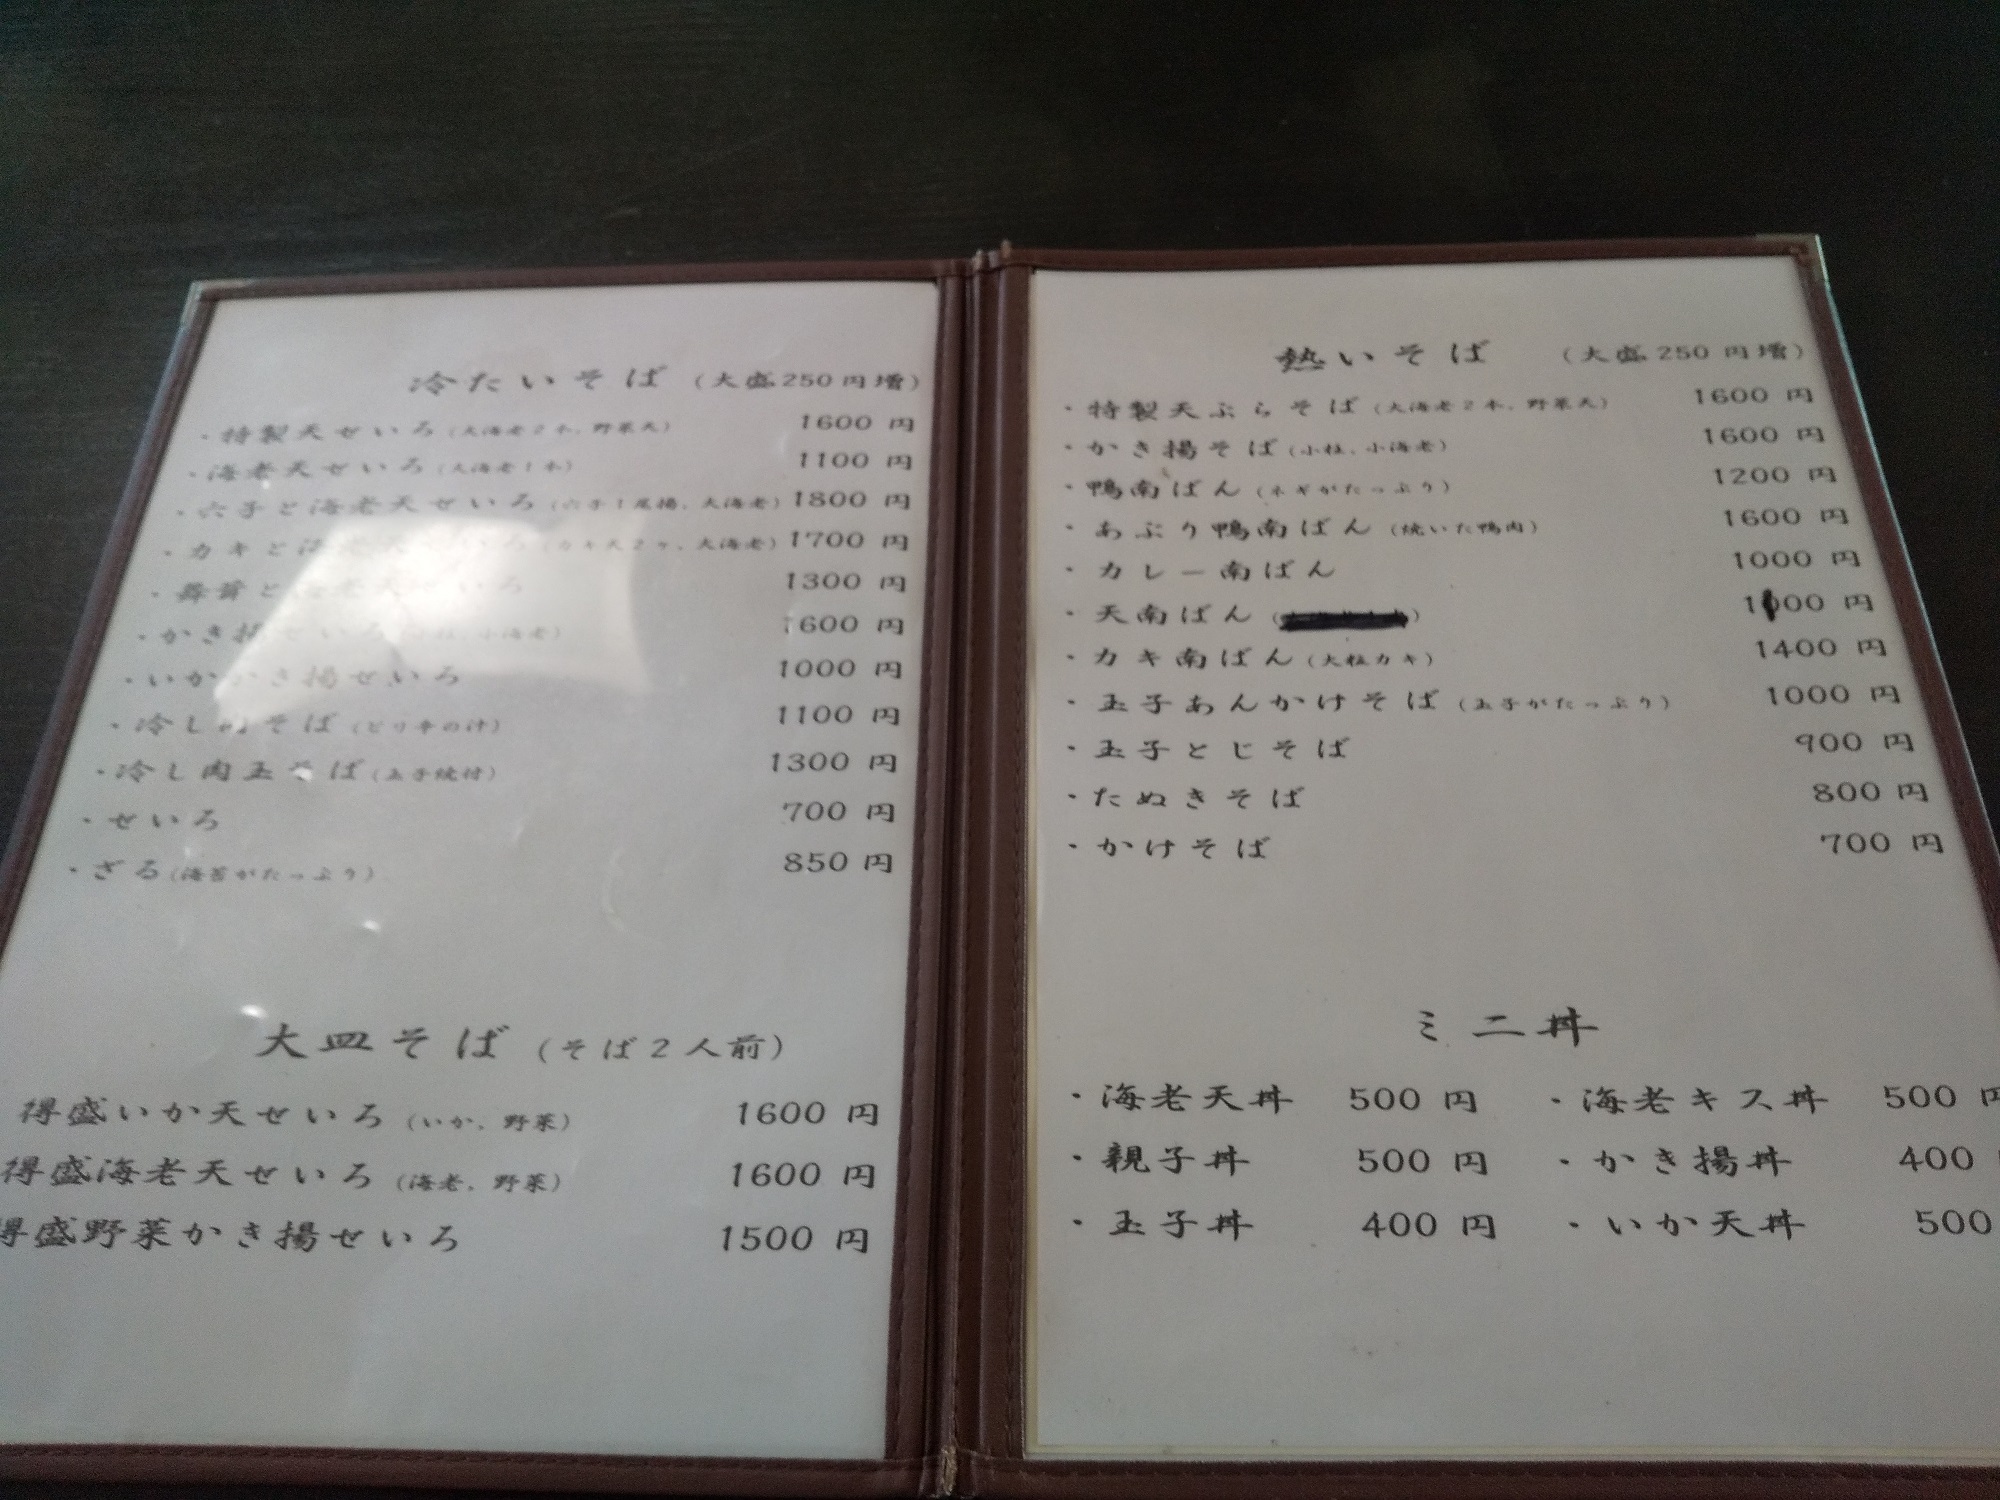 冷たいそば (大盛250円増)
・特製天せいろ (大海老2本、野菜天) 1600 円
・海老天せいろ (大海老1本) 1100 円
・穴子と海老天せいろ (穴子1尾揚、大海老) 1800 円
・カキと海老天せいろ (カキ天2ヶ、大海老) 1700 円
・舞茸と海老天せいろ 1300 円
・かき揚せいろ (小柱、小海老) 1600 円
・いかかき揚せいろ 1000 円
・冷し肉そば (ピリ辛の汁) 1100 円
・冷し肉玉そば (玉子焼付) 1300 円
・せいろ 700 円
・ざる (海苔がたっぷり) 850 円
大皿そば (そば2人前)
得盛いか天せいろ (いか、野菜) 1600 円
得盛海老天せいろ (海老、野菜) 1600 円
得盛野菜かき揚せいろ 1500 円
熱いそば (大盛250円増)
・特製天ぷらそば (大海老2本、野菜天) 1600 円
・かき揚そば (小柱、小海老) 1600 円
・鴨南ばん (ネギがたっぷり) 1200 円
・あぶり鴨南ばん (焼いた鴨肉) 1600 円
・カレー南ばん 1000 円
・天南ばん 1100 円
・カキ南ばん (大粒カキ) 1400 円
・玉子あんかけそば (玉子がたっぷり) 1000 円
・玉子とじそば 900 円
・たぬきそば 800 円
・かけそば 700 円
ミニ丼
・海老天丼 500 円 ・海老キス丼 500 円
・親子丼 500 円 ・かき揚丼 400
・玉子丼 400 円 ・いか天丼 500